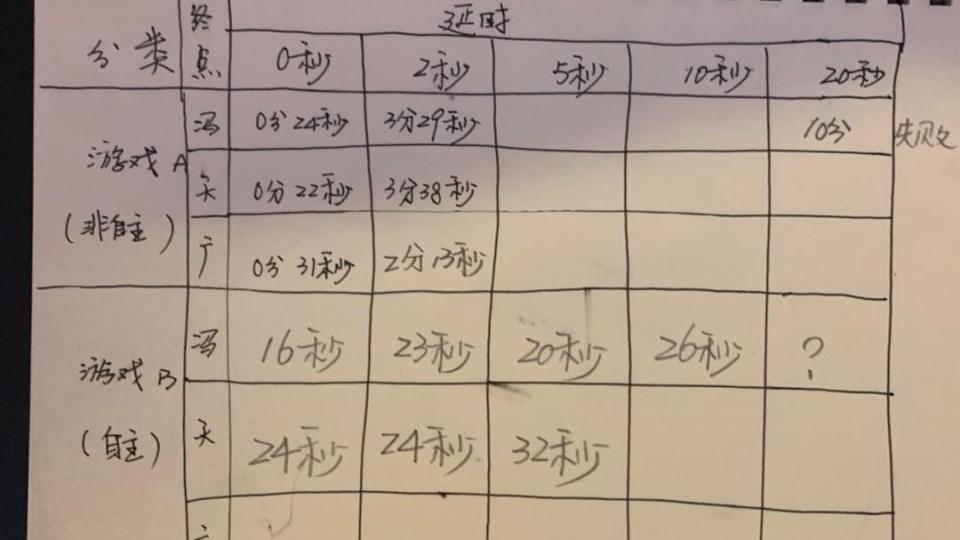 分类 终点 延时
0秒 2秒 5秒 10秒 20秒
游戏A
(非自主)
冯 0分24秒 3分29秒 10分 失败
天 0分22秒 3分38秒
亍 0分31秒 2分13秒
游戏B
(自主)
冯 16秒 23秒 20秒 26秒 ?
天 24秒 24秒 32秒